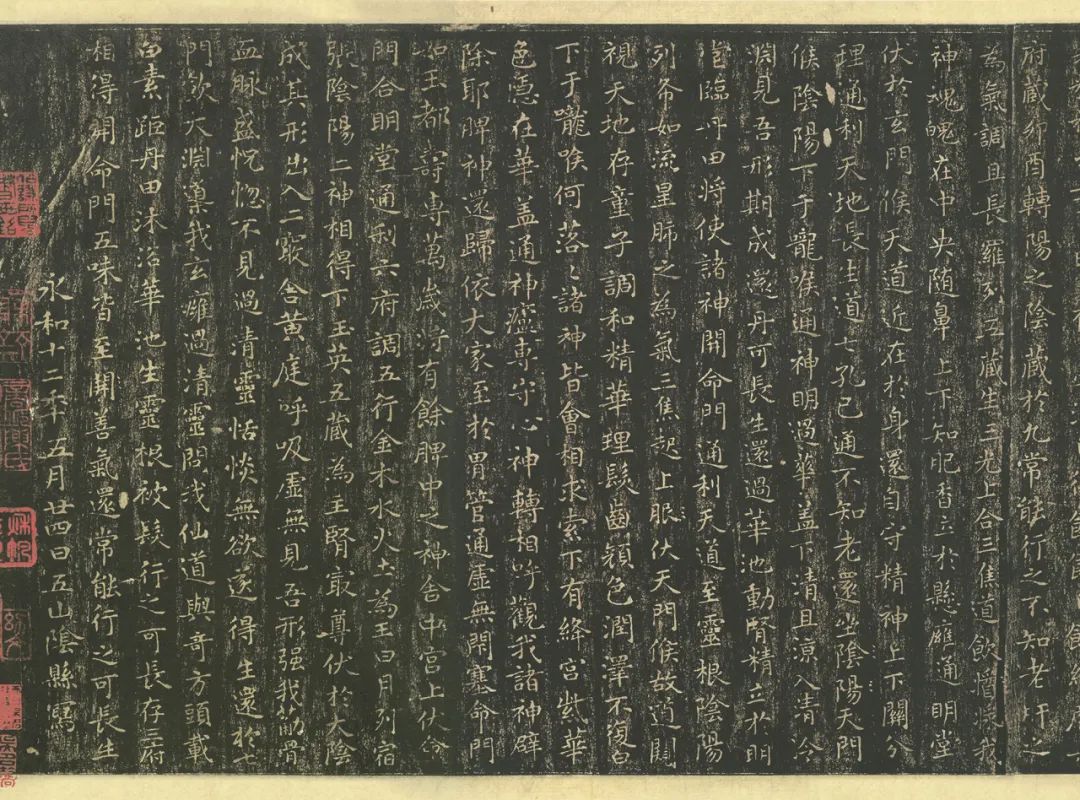 府藏卯酉轉陽之陰藏於九常能行之不知老肝之
為氣調且長羅列五藏生三光上合三焦道飲醬漿我
神魂魄在中央随鼻上下知肥香立於懸膺通明堂
伏於玄門候天道近在於身還自守精神上下關分
理通利天地長生道七孔已通不知老還坐陰陽天門
候陰陽下于嚨喉通神明過華盖下清且凉入清泠
淵見吾形期成還丹可長生還過華池動腎精立於明
堂臨丹田将使諸神開命門通利天道至靈根陰陽
列布如流星肺之為氣三焦起上服伏天門候故道闚
視天地存童子調和精華理髮齒顔色潤澤不復白
下于嚨喉何落々諸神皆會相求索下有絳宮紫華
色隱在華盖通神廬専守心神轉相呼觀我諸神辟
除耶脾神還歸依大家至於胃管通虛無閉塞命門
如玉都壽専萬歲将有餘脾中之神舎中宮上伏命
門合明堂通利六府調五行金木水火土為王日月列宿
張陰陽二神相得下玉英五藏為主腎㝡尊伏於大陰
成其形出入二竅舎黄庭呼吸虛無見吾形强我筋骨
血脉盛恍惚不見過清靈恬惔無欲遂得生還於七
門飲大淵道我玄膺過清靈問我仙道與奇方頭載
白素距丹田沐浴華池生靈根被髮行之可長存三府
相得開命門五味皆至開善氣還常能行之可長生
永和十二年五月廿四日五山陰縣寫